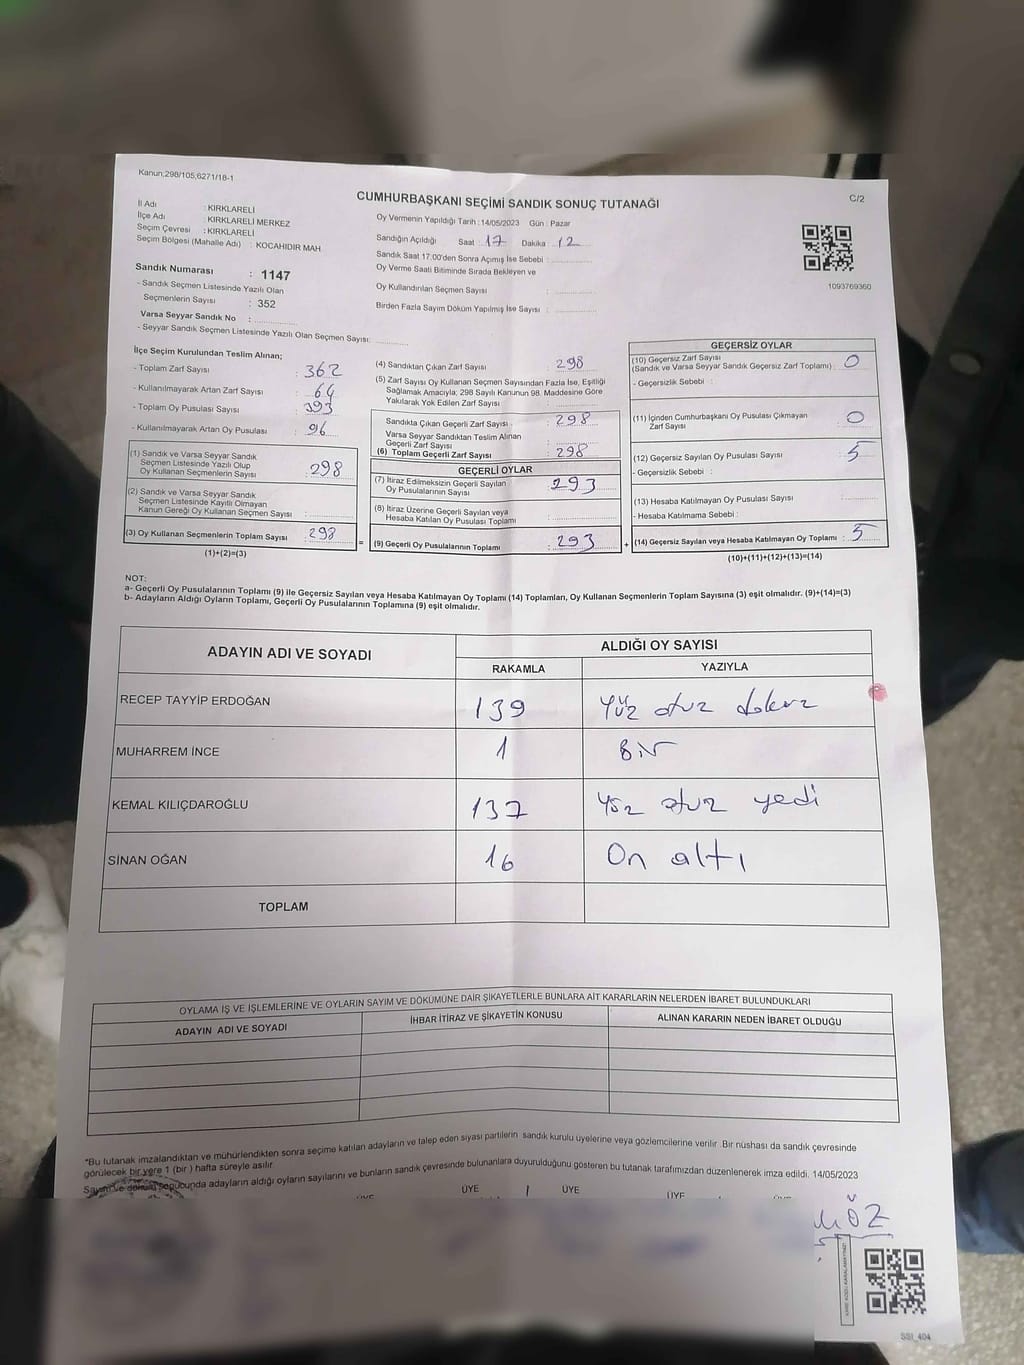 Kanun,298/105,6271/18-1
CUMHURBAŞKANI SEÇİMİ SANDIK SONUÇ TUTANAĞI
C/2
İl Adı : KIRKLARELİ
İlçe Adı : KIRKLARELİ MERKEZ
Seçim Çevresi : KIRKLARELİ
Seçim Bölgesi (Mahalle Adı) : KOCAHIDIR MAH
Sandık Numarası : 1147
- Sandık Seçmen Listesinde Yazılı Olan
Seçmenlerin Sayısı : 352
Varsa Seyyar Sandık No :
- Seyyar Sandık Seçmen Listesinde Yazılı Olan Seçmen Sayısı:
Oy Vermenin Yapıldığı Tarih : 14/05/2023 Gün : Pazar
Sandığın Açıldığı Saat 17 Dakika 12
Sandık Saat 17:00'den Sonra Açımış İse Sebebi :
Oy Verme Saati Bitiminde Sırada Bekleyen ve
Oy Kullandırılan Seçmen Sayısı :
Birden Fazla Sayım Döküm Yapılmış İse Sayısı :
1093769360
İlçe Seçim Kurulundan Teslim Alınan;
- Toplam Zarf Sayısı : 362
- Kullanılmayarak Artan Zarf Sayısı : 64
- Toplam Oy Pusulası Sayısı : 393
- Kullanılmayarak Artan Oy Pusulası : 96
(1) Sandık ve Varsa Seyyar Sandık
Seçmen Listesinde Yazılı Olup
Oy Kullanan Seçmenlerin Sayısı : 298
(2) Sandık ve Varsa Seyyar Sandık
Seçmen Listesinde Kayıtlı Olmayan
Kanun Gereği Oy Kullanan Seçmen Sayısı :
(3) Oy Kullanan Seçmenlerin Toplam Sayısı : 298
(1)+(2)=(3)
(4) Sandıktan Çıkan Zarf Sayısı : 298
(5) Zarf Sayısı Oy Kullanan Seçmen Sayısından Fazla İse, Eşitliği
Sağlamak Amacıyla; 298 Sayılı Kanunun 98. Maddesine Göre
Yakılarak Yok Edilen Zarf Sayısı :
Sandıkta Çıkan Geçerli Zarf Sayısı : 298
Varsa Seyyar Sandıktan Teslim Alınan
Geçerli Zarf Sayısı :
(6) Toplam Geçerli Zarf Sayısı : 298
GEÇERLİ OYLAR
(7) İtiraz Edilmeksizin Geçerli Sayılan
Oy Pusulalarının Sayısı : 293
(8) İtiraz Üzerine Geçerli Sayılan veya
Hesaba Katılan Oy Pusulası Toplamı :
= (9) Geçerli Oy Pusulalarının Toplamı : 293 +
GEÇERSİZ OYLAR
(10) Geçersiz Zarf Sayısı
(Sandık ve Varsa Seyyar Sandık Geçersiz Zarf Toplamı) : 0
- Geçersizlik Sebebi :
(11) İçinden Cumhurbaşkanı Oy Pusulası Çıkmayan
Zarf Sayısı : 0
(12) Geçersiz Sayılan Oy Pusulası Sayısı : 5
- Geçersizlik Sebebi :
(13) Hesaba Katılmayan Oy Pusulası Sayısı :
- Hesaba Katılmama Sebebi :
(14) Geçersiz Sayılan veya Hesaba Katılmayan Oy Toplamı : 5
(10)+(11)+(12)+(13)=(14)
NOT:
a- Geçerli Oy Pusulalarının Toplamı (9) ile Geçersiz Sayılan veya Hesaba Katılmayan Oy Toplamı (14) Toplamları, Oy Kullanan Seçmenlerin Toplam Sayısına (3) eşit olmalıdır. (9)+(14)=(3)
b- Adayların Aldığı Oyların Toplamı, Geçerli Oy Pusulalarının Toplamına (9) eşit olmalıdır.
ADAYIN ADI VE SOYADI
ALDIĞI OY SAYISI
RAKAMLA YAZIYLA
RECEP TAYYİP ERDOĞAN 139 Yüz otuz dokuz
MUHARREM İNCE 1 Bir
KEMAL KILIÇDAROĞLU 137 Yüz otuz yedi
SİNAN OĞAN 16 On altı
TOPLAM
OYLAMA İŞ VE İŞLEMLERİNE VE OYLARIN SAYIM VE DÖKÜMÜNE DAİR ŞİKAYETLERLE BUNLARA AİT KARARLARIN NELERDEN İBARET BULUNDUKLARI
ADAYIN ADI VE SOYADI İHBAR İTİRAZ VE ŞİKAYETİN KONUSU ALINAN KARARIN NEDEN İBARET OLDUĞU
*Bu tutanak imzalandıktan ve mühürlendikten sonra seçime katılan adayların ve talep eden siyasi partilerin sandık kurulu üyelerine veya gözlemcilerine verilir. Bir nüshası da sandık çevresinde
görülecek bir yere 1 (bir ) hafta süreyle asılır.
Sayım ve döküm sonucunda adayların aldığı oyların sayılarını ve bunların sandık çevresinde bulunanlara duyurulduğunu gösteren bu tutanak tarafımızdan düzenlenerek imza edildi. 14/05/2023
ÜYE ÜYE ÜYE ÜYE
SSI_404